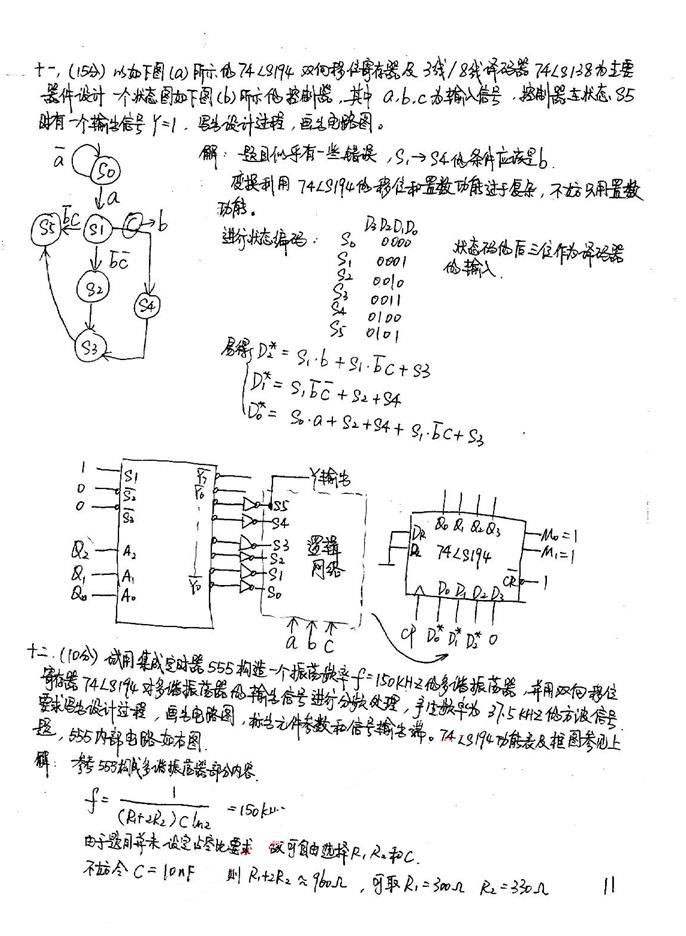 十一、(15分) 以如下图(a)所示的74LS194 双向移位寄存器及 3线/8线译码器 74LS138为主要
器件设计一个状态图如下图(b)所示的控制器,其中 a.b.c 为输入信号,控制器在状态 S5
时有一个输出信号 Y=1,写出设计过程,画出电路图。
解: 题目似乎有一些错误, S₁→S4的条件应该是b.
变换利用 74LS194的移位和置数功能过于复杂,不妨只用置数
功能。
a̅ S0
a
S5 b̅c S1 c̅→b
b̅c̅
S2 S4
S3
进行状态编码: D₃D₂D₁D₀
S₀ 0000
S₁ 0001
S₂ 0010
S₃ 0011
S₄ 0100
S5 0101
状态码的后三位作为译码器
的输入.
易得 D₂* = S₁·b + S₁·b̅c + S3
D₁* = S₁b̅c̅ + S₂ + S4
D₀* = S₀·a + S₂ + S4 + S₁·b̅c + S₃
1 S1 Y̅₇
0 S̅₂ Y̅₆
0 S̅₃
Q₂ A₂
Q₁ A₁
Q₀ A₀ Y̅₀
Y输出
S5
S4
S3
S₂
S1
S₀
逻辑
网络
a b c
Q₀ Q₁ Q₂ Q₃
DR
DL 74LS194
M₀=1
M₁=1
C̅R̅ 1
D₀ D₁ D₂ D₃
CP D₀* D₁* D₂* 0
十二.(10分) 试用集成定时器555构造一个振荡频率 f=150KHZ的多谐振荡器,并用双向移位
寄存器74LS194对多谐振荡器的输出信号进行分频处理,产生频率为 37.5KHZ的方波信号
要求写出设计过程,画出电路图,标出元件参数和信号输出端。74LS194功能表及框图参见上
题,555内部电路如右图.
解: 参考555构成多谐振荡器部分内容.
f = 1/((R₁+2R₂)C ln2) = 150k
由于题目并未设定占空比要求 故可自由选择R₁ R₂和C.
不妨令 C=10nF 则 R₁+2R₂≈960Ω, 可取 R₁=300Ω R₂=330Ω
11